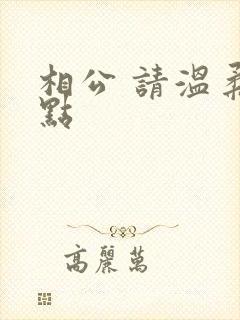 相公 請溫柔
點
高麗萬